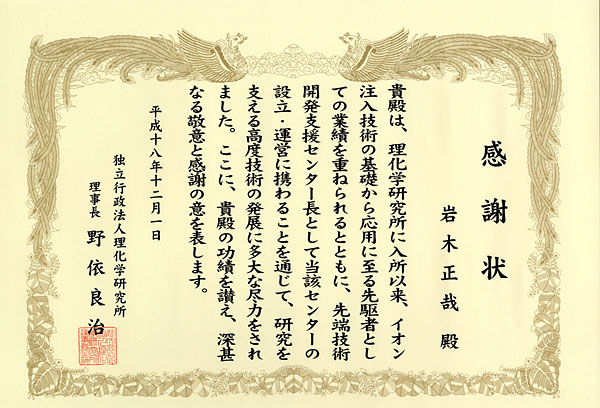 感謝状
岩木正哉 殿
貴殿は、理化学研究所に入所以来、イオン
注入技術の基礎から応用に至る先駆者とし
ての業績を重ねられるとともに、先端技術
開発支援センター長として当該センターの
設立・運営に携わることを通じて、研究を
支える高度技術の発展に多大な尽力をされ
ました。ここに、貴殿の功績を讃え、深甚
なる敬意と感謝の意を表します。
平成十八年十二月一日
独立行政法人理化学研究所
理事長 野依良治